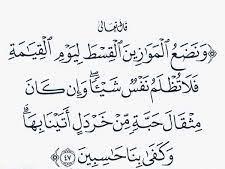 قال تعالى
﴿وَنَضَعُ الْمَوَازِينَ الْقِسْطَ لِيَوْمِ الْقِيَامَةِ
فَلَا تُظْلَمُ نَفْسٌ شَيْـًٔا ۖ وَإِن كَانَ
مِثْقَالَ حَبَّةٍ مِّنْ خَرْدَلٍ أَتَيْنَا بِهَا ۗ
وَكَفَىٰ بِنَا حَاسِبِينَ ٤٧﴾